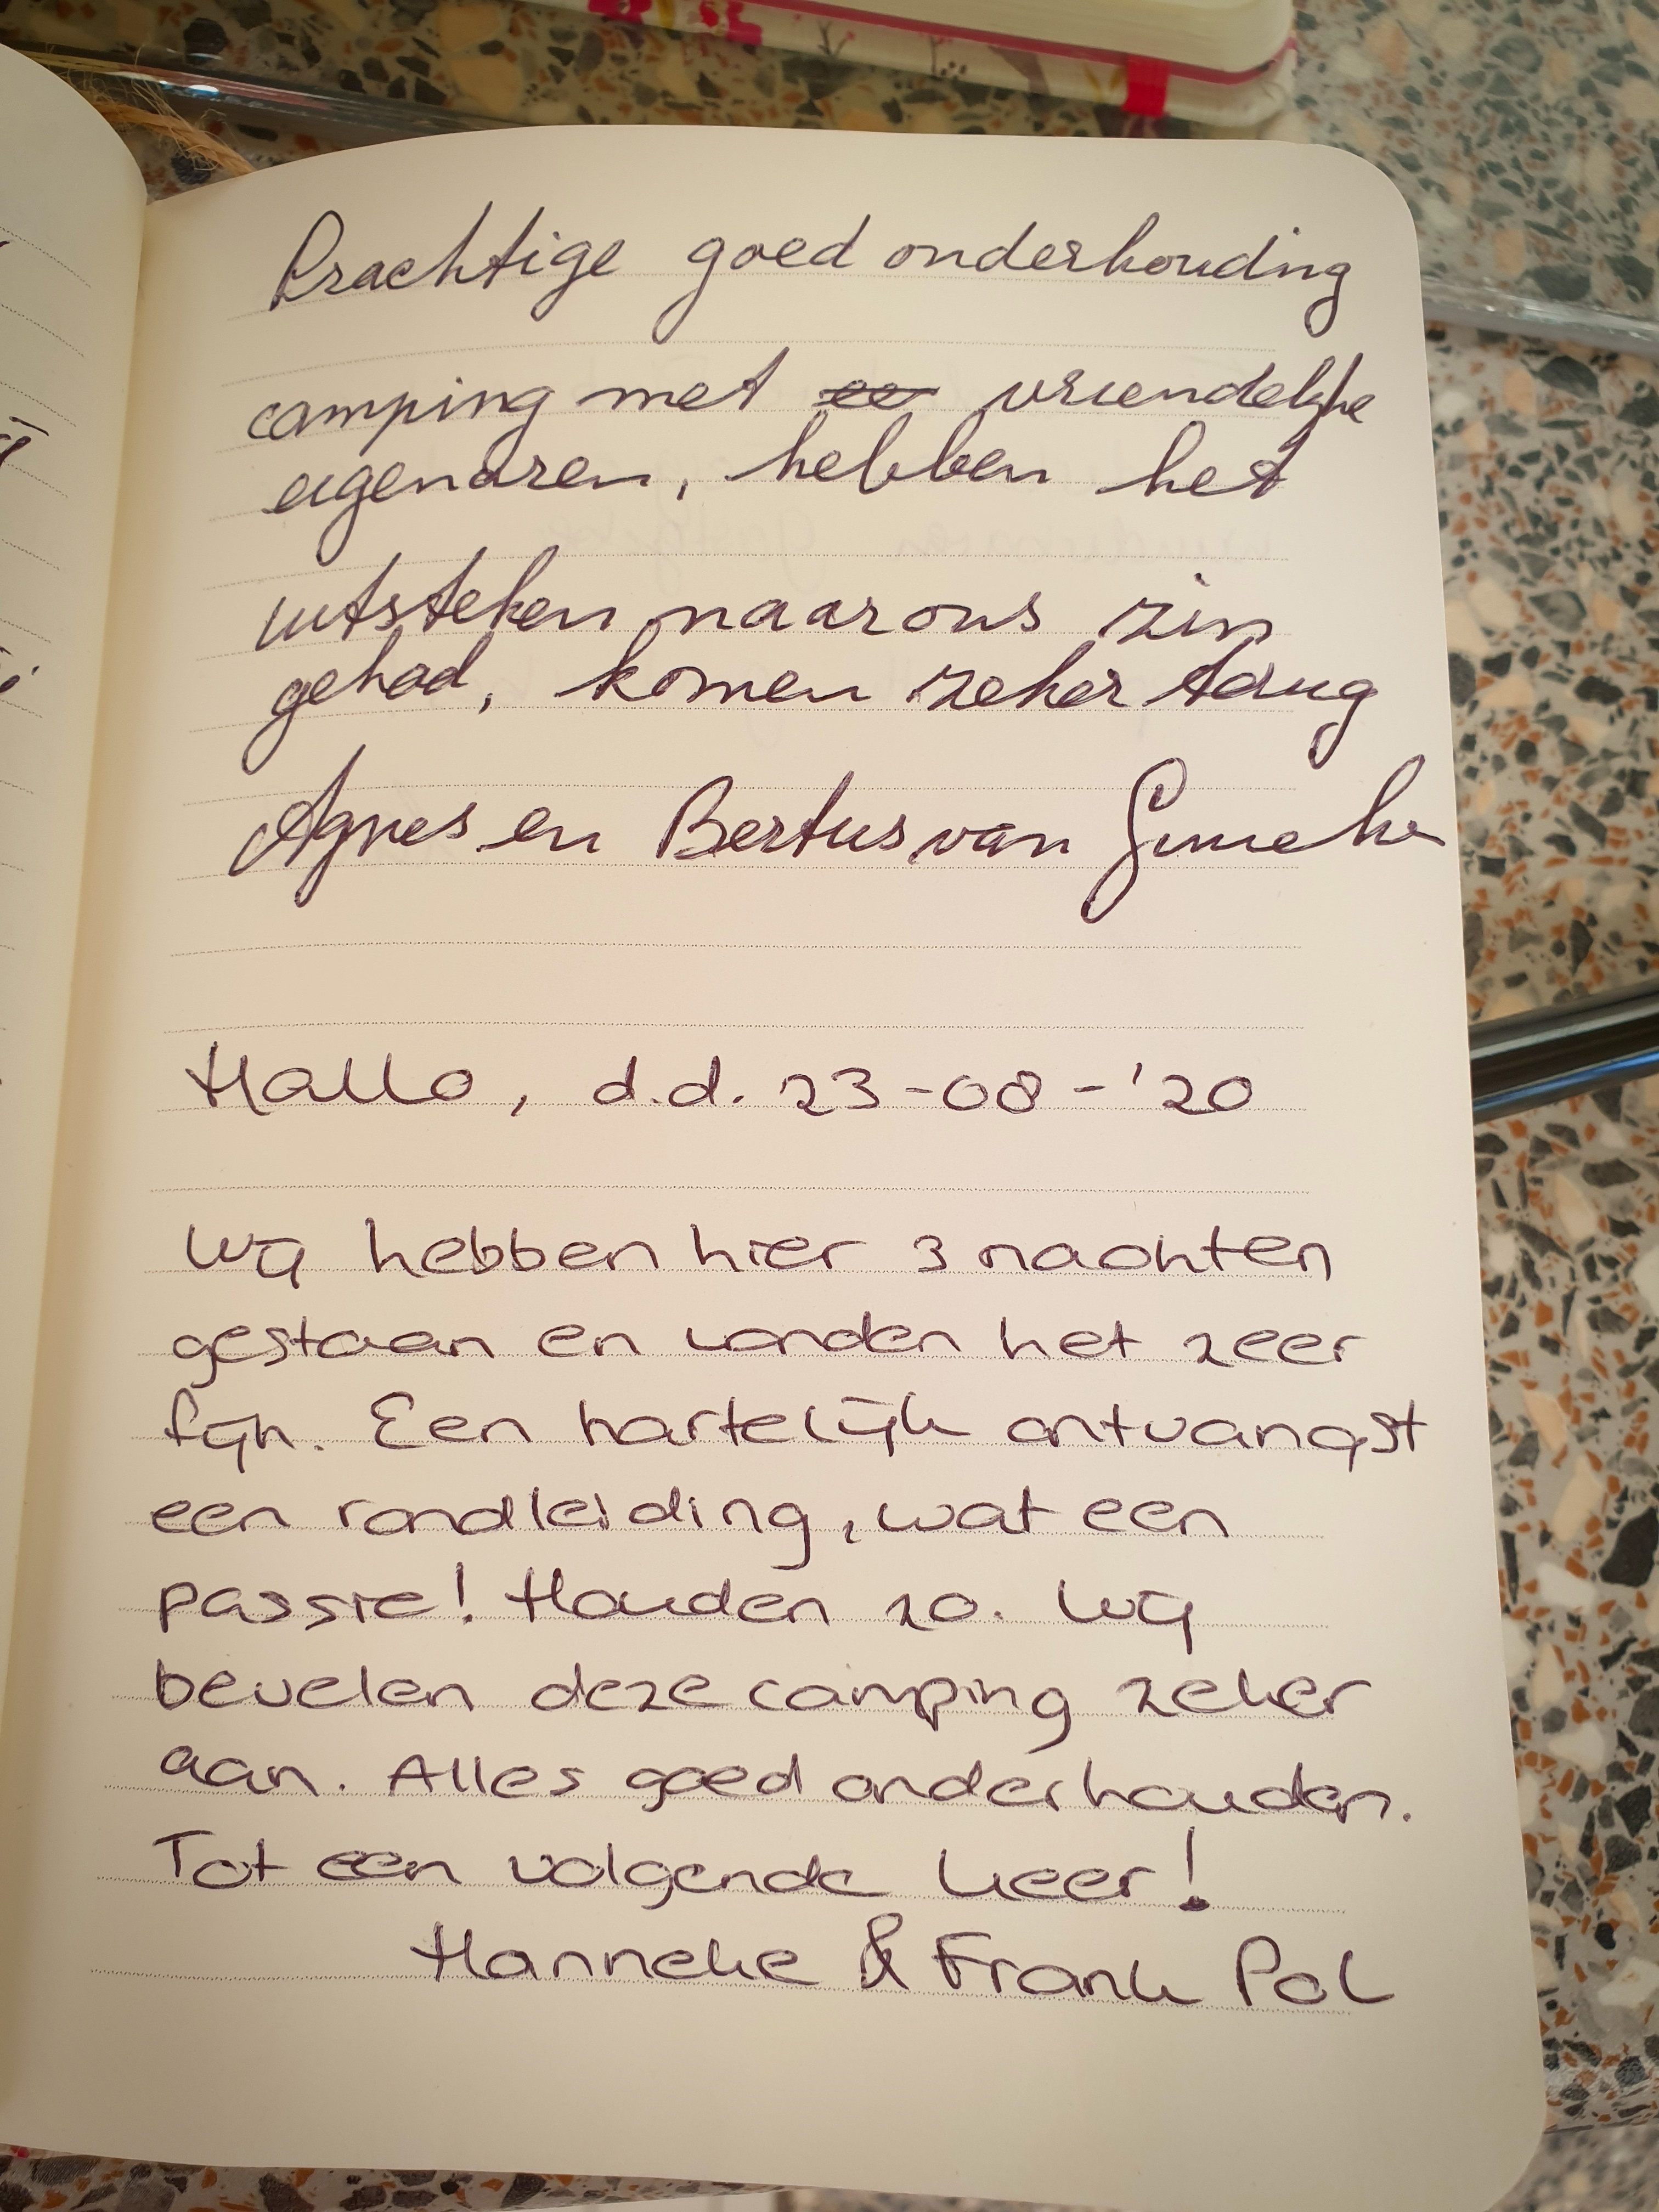 Prachtige goed onderhouding
camping met vriendelijke
eigenaren, hebben het
uitsteken naar ons zin
gehad, komen zeker terug
Agnes en Bertus van
Hallo, d.d. 23-08-'20
Wij hebben hier 3 nachten
gestaan en vonden het zeer
fijn. Een hartelijk ontvangst
een rondleiding, wat een
passie! Houden zo. Wij
bevelen deze camping zeker
aan. Alles goed onderhouden.
Tot een volgende keer!
Hanneke & Frank Pol